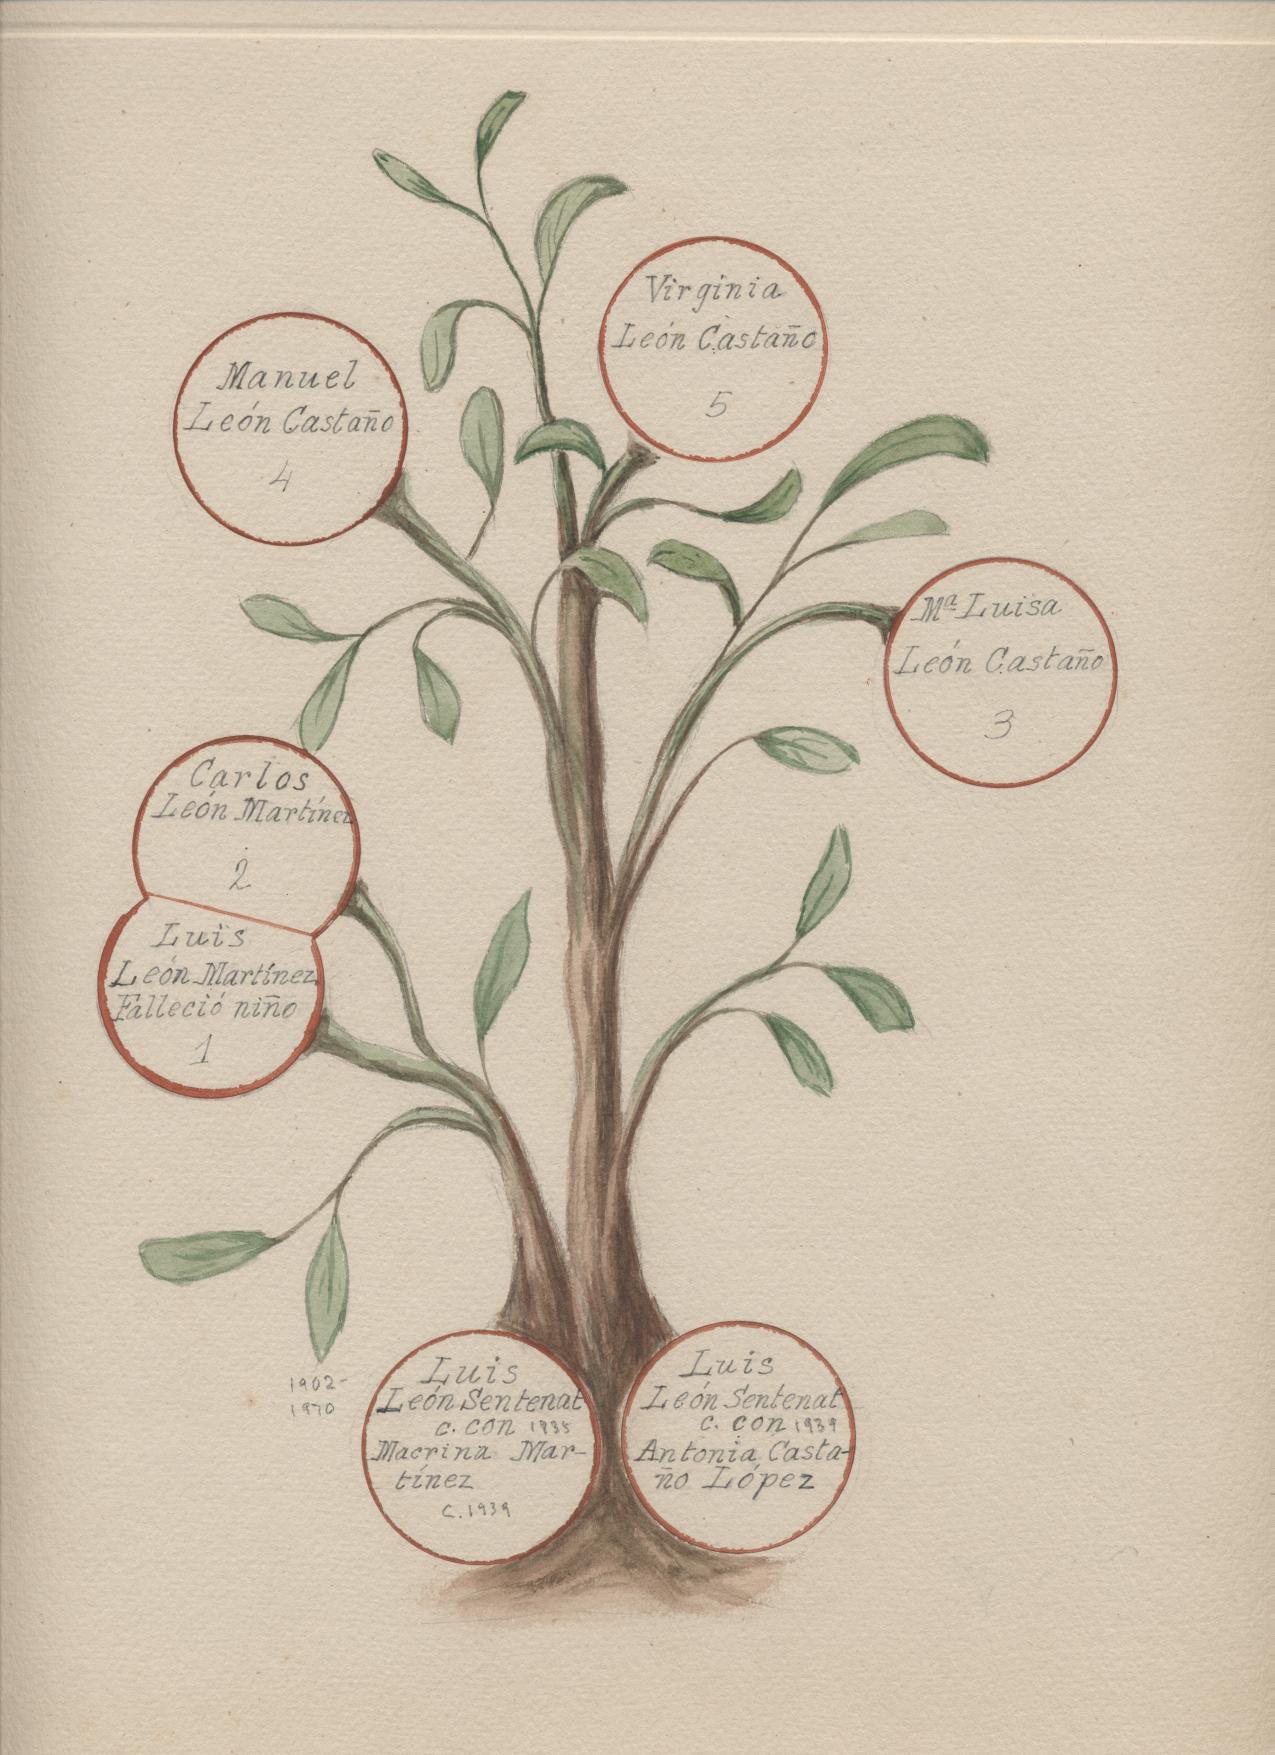 Virginia
León Castaño
5
Manuel
León Castaño
4
Mª Luisa
León Castaño
3
Carlos
León Martínez
2
Luis
León Martínez
Falleció niño
1
1902-
1970
Luis
León Sentenat
c. con 1935
Macrina Mar-
tínez
c. 1939
Luis
León Sentenat
c. con 1939
Antonia Casta-
ño López